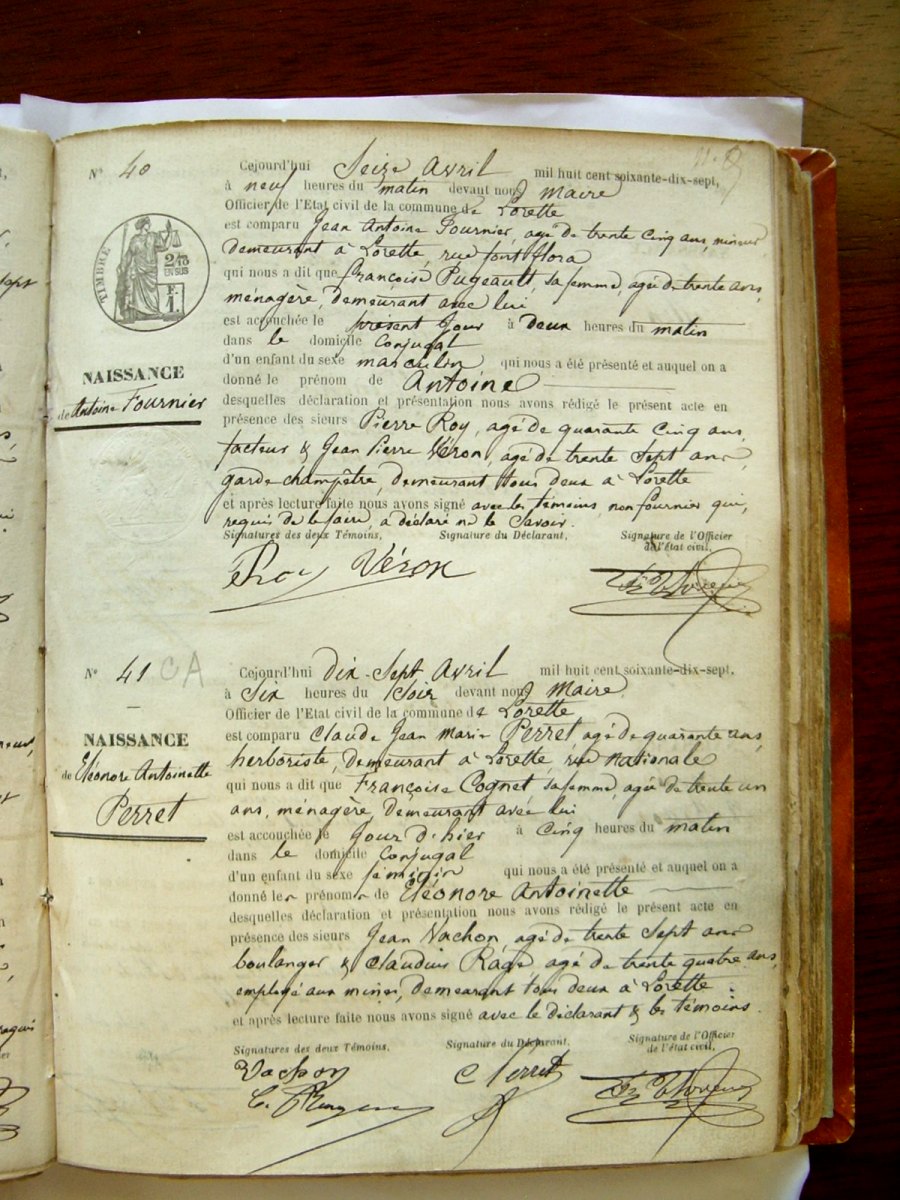 N° 40
Cejourd'hui Seize Avril mil huit cent soixante-dix-sept,
à neuf heures du matin devant nous Maire
Officier de l'Etat civil de la commune de Lorette
est comparu Jean Antoine Fournier, agé de trente cinq ans, mineur
demeurant à Lorette, rue font flora
qui nous a dit que françoise Pugeault, sa femme, agée de trente ans,
ménagère, demeurant avec lui
est accouchée le présent jour à deux heures du matin
dans le domicile conjugal
d'un enfant du sexe masculin qui nous a été présenté et auquel on a
donné le prénom de Antoine
desquelles déclaration et présentation nous avons rédigé le présent acte en
présence des sieurs Pierre Roy, agé de quarante cinq ans,
facteur & Jean Pierre Véron, agé de trente sept ans,
garde champêtre, demeurant tous deux à Lorette
et après lecture faite nous avons signé avec les témoins, non fournier qui,
requis de le faire, a déclaré ne le savoir.
Signatures des deux Témoins, Signature du Déclarant, Signature de l'Officier
de l'état civil,
Roy Véron
TIMBRE
2/10
EN SUS
F.
1.
NAISSANCE
de Antoine Fournier
N° 41 CA
NAISSANCE
de Eléonore Antoinette
Perret
Cejourd'hui dix-sept Avril mil huit cent soixante-dix-sept,
à Six heures du soir devant nous Maire
Officier de l'Etat civil de la commune de Lorette
est comparu Claude Jean Marie Perret, agé de quarante ans,
herboriste, demeurant à Lorette, rue Nationale
qui nous a dit que Françoise Cognet sa femme, agée de trente un
ans, ménagère, demeurant avec lui
est accouchée le jour d'hier à cinq heures du matin
dans le domicile conjugal
d'un enfant du sexe féminin qui nous a été présenté et auquel on a
donné les prénoms de Eléonore Antoinette
desquelles déclaration et présentation nous avons rédigé le présent acte en
présence des sieurs Jean Vachon, agé de trente sept ans
boulanger & Claudius Rage agé de trente quatre ans,
employé aux mines, demeurant tous deux à Lorette.
et après lecture faite nous avons signé avec le déclarant & les témoins.
Signatures des deux Témoins, Signature du Déclarant, Signature de l'Officier
de l'état civil,
Vachon C Perret